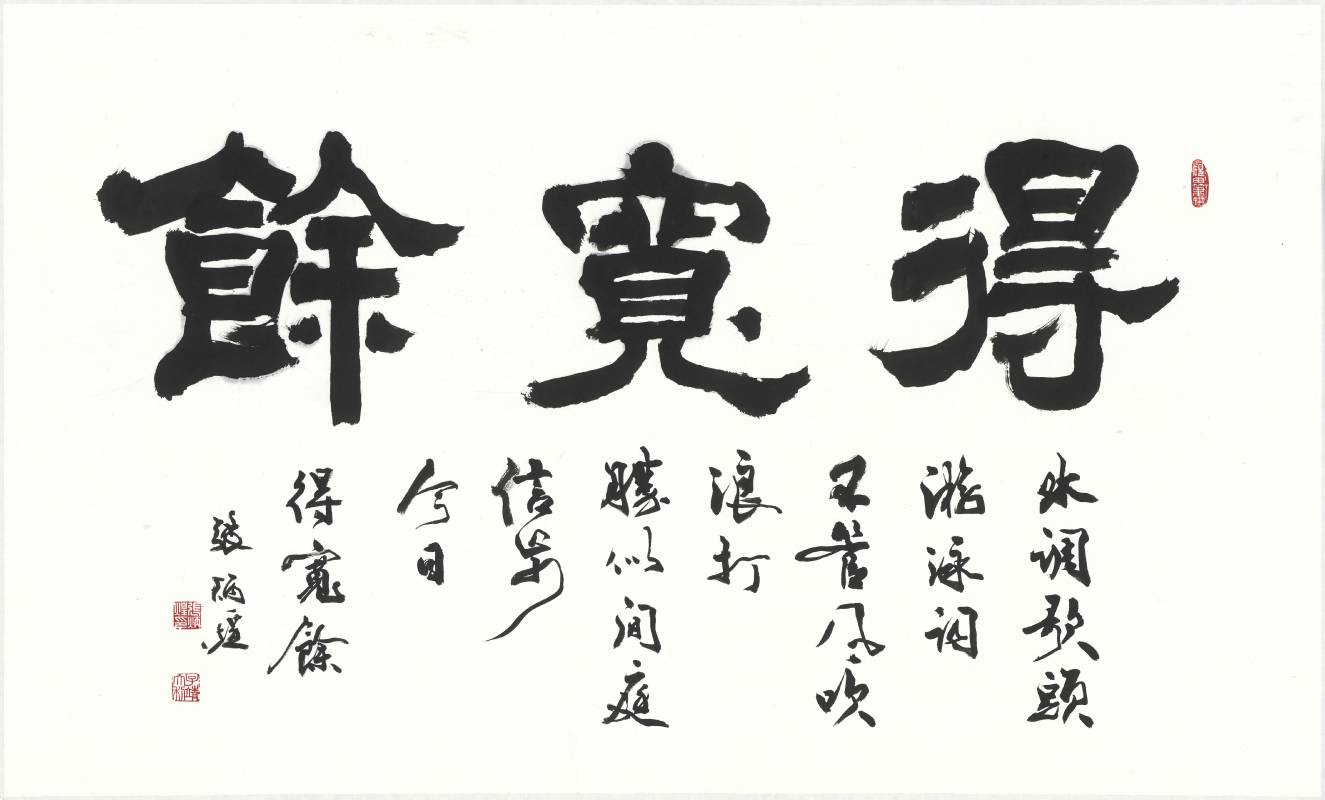 得寬餘
水调歌頭
游泳词
不管风吹
浪打
勝似闲庭
信步
今日
得寬餘
張炳煌